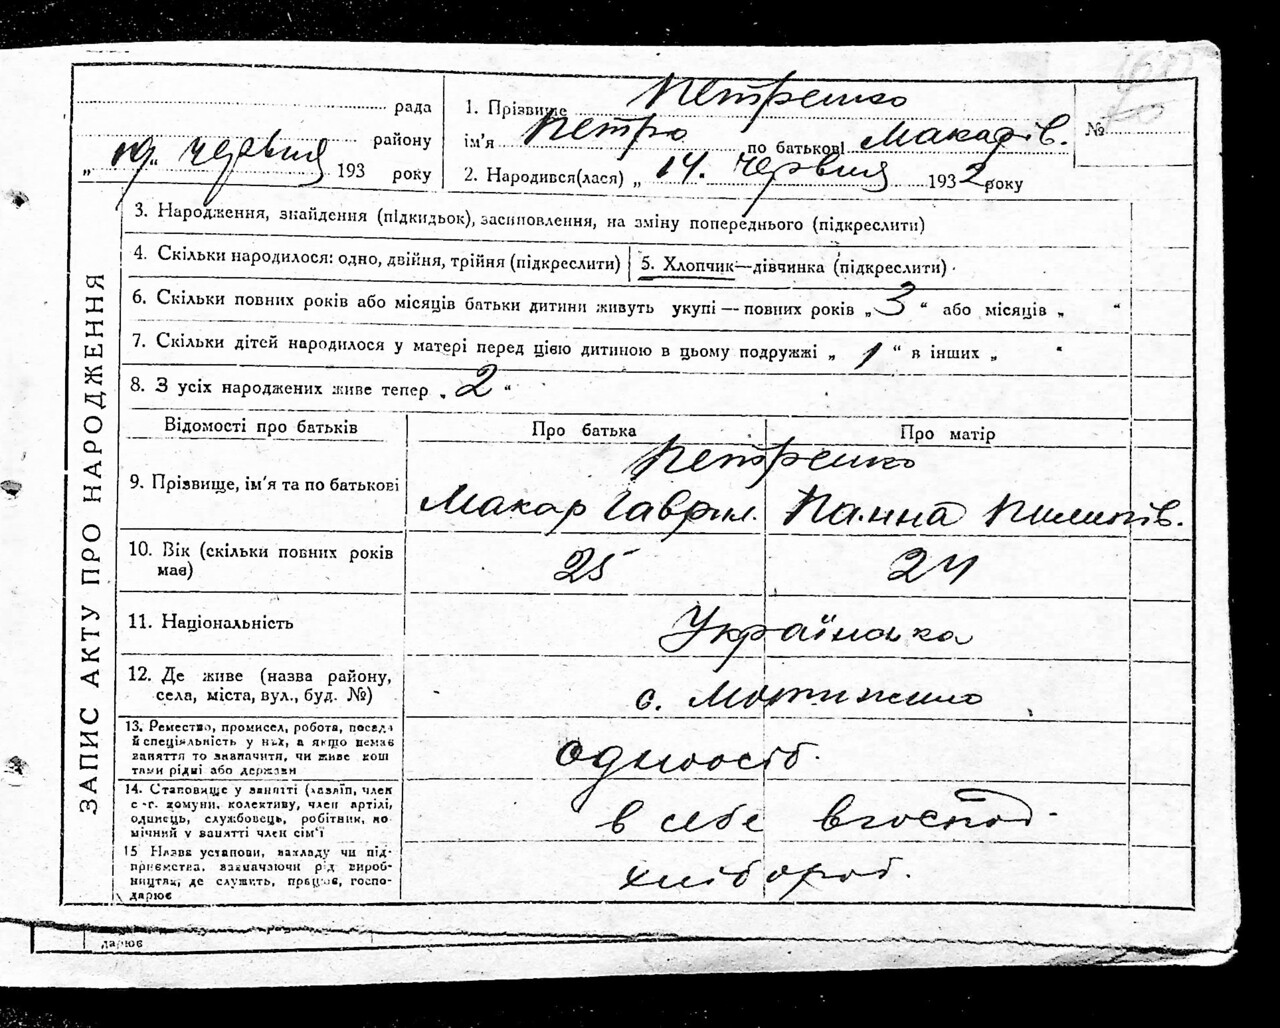 рада
району
„ 19 " червня 193 року
1. Прізвище Петренко
ім'я Петро по батькові Макарів.
2. Народився(лася) „ 14. червня 1932 року
№
ЗАПИС АКТУ ПРО НАРОДЖЕННЯ
3. Народження, знайдення (підкидьок), засиновлення, на зміну попереднього (підкреслити)
4. Скільки народилося: одно, двійня, трійня (підкреслити)
5. Хлопчик—дівчинка (підкреслити)
6. Скільки повних років або місяців батьки дитини живуть укупі — повних років „ 3 " або місяців „ "
7. Скільки дітей народилося у матері перед цією дитиною в цьому подружжі „ 1 " в інших „ "
8. З усіх народжених живе тепер „ 2 "
Відомості про батьків Про батька Про матір
Петренко
9. Прізвище, ім'я та по батькові Макар Гаврил. Ганна Пилипів.
10. Вік (скільки повних років 25 24
має)
11. Національність Українська
12. Де живе (назва району,
села, міста, вул., буд. №) с. Мотижино
13. Ремество, промисел, робота, посада
й спеціяльність у них, а якщо немає
заняття то зазначити, чи живе кош
тами рідні або держави
одноосіб.
14. Становище у занятті (хазяїн, член
с.-г. комуни, колективу, член артілі,
одинець, службовець, робітник, по
мічний у занятті член сім'ї
в себе в господ.
15 Назва установи, закладу чи під-
приємства, зазначаючи рід вироб-
ництва, де служить, працює, госпо-
дарює
хлібороб.
дарює